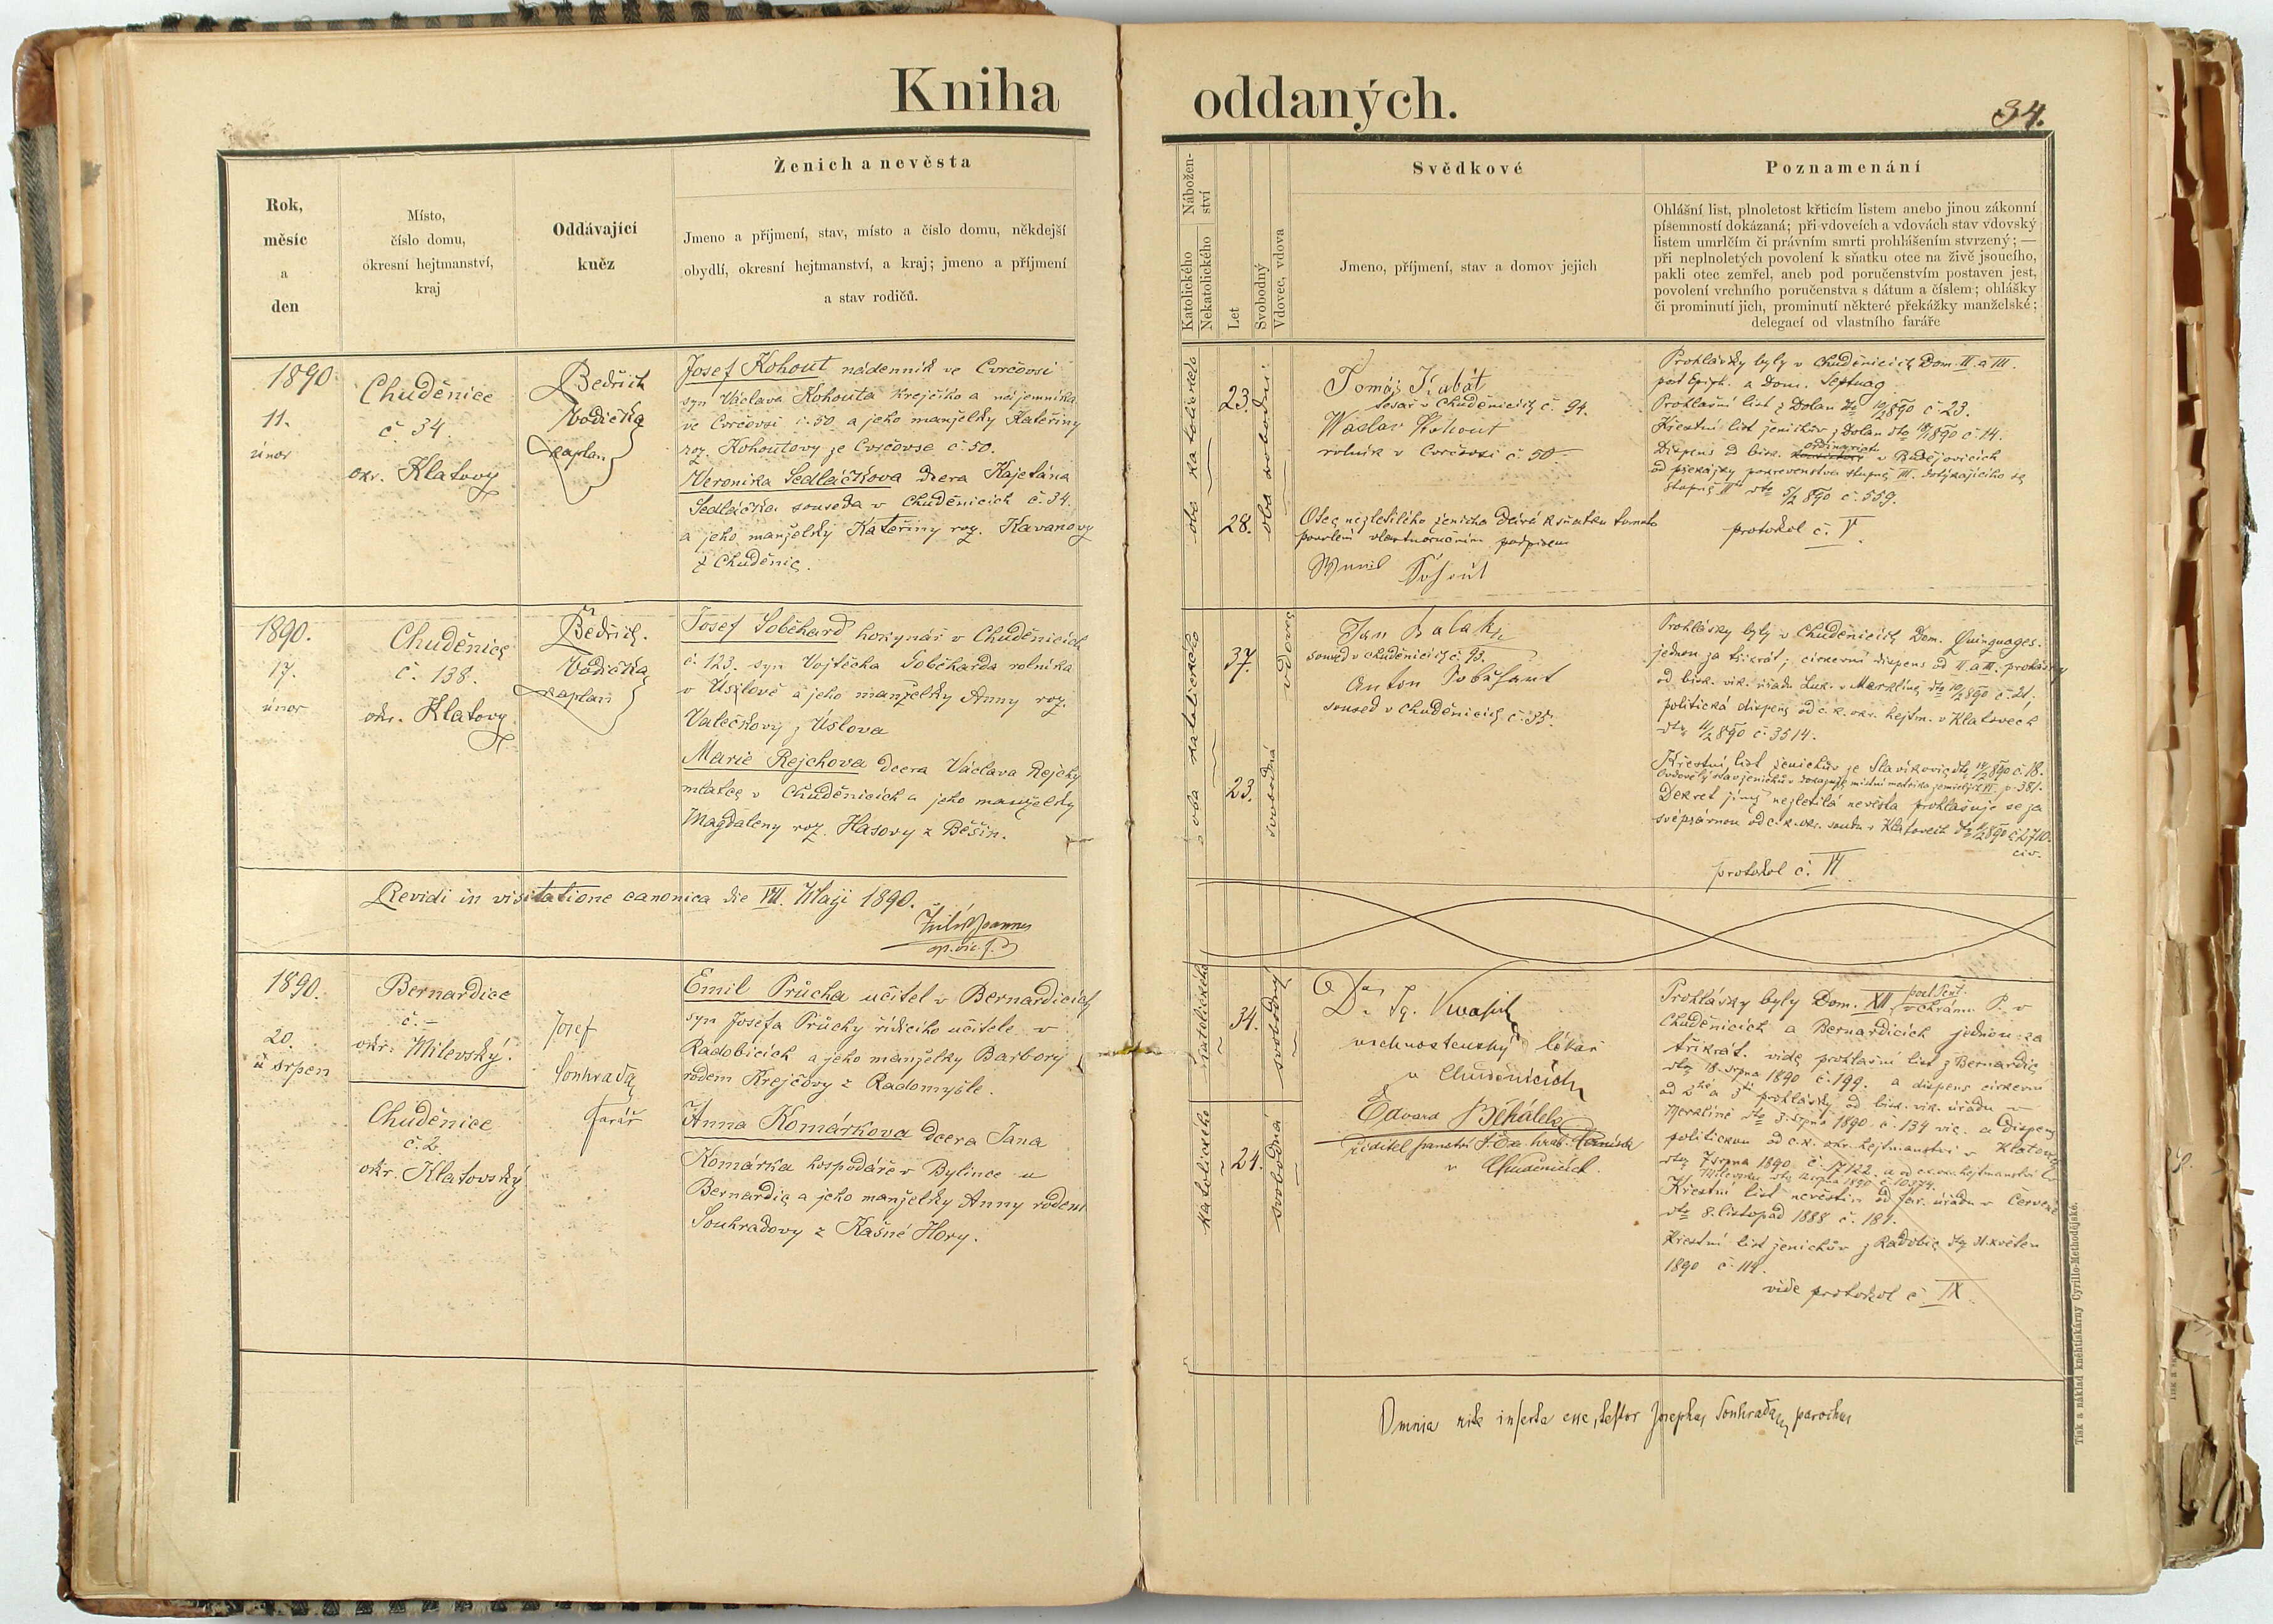 Kniha oddaných.
34.
Rok,
měsíc
a
den
Místo,
číslo domu,
okresní hejtmanství,
kraj
Oddávající
kněz
Ženich a nevěsta
Jmeno a příjmení, stav, místo a číslo domu, někdejší
obydlí, okresní hejtmanství, a kraj; jmeno a příjmení
a stav rodičů.
Nábožen-
ství
Katolického
Nekatolického
Let
Svobodný
Vdovec, vdova
Svědkové
Jmeno, příjmení, stav a domov jejich
Poznamenání
Ohlášní list, plnoletost křticím listem anebo jinou zákonní
písemností dokázaná; při vdovcích a vdovách stav vdovský
listem umrlčím či právním smrti prohlášením stvrzený; —
při neplnoletých povolení k sňatku otce na živě jsoucího,
pakli otec zemřel, aneb pod poručenstvím postaven jest,
povolení vrchního poručenstva s dátum a číslem; ohlášky
či prominutí jich, prominutí některé překážky manželské;
delegací od vlastního faráře
1890.
11.
únor
Chuděnice
č. 34.
okr. Klatovy
Bedřich
Vodička
kaplan
Josef Kohout nádenník ve Cvrčovsi
syn Václava Kohouta krejčího a nájemníka
ve Cvrčovsi č. 50 a jeho manželky Kateřiny
roz. Kohoutovy ze Cvrčovse č. 50.
Veronika Sedláčkova dcera Kajetána
Sedláčka souseda v Chuděnicích č. 34.
a jeho manželky Kateřiny roz. Kavanovy
z Chuděnic.
oba katolického
23.
28.
oba svobodni
Tomáš Kubát
tesař v Chuděnicích č. 94.
Waclav Kohout
rolník v Cvrčovsi č. 50.
Otec nezletilého ženicha dává k sňatku tomuto
povolení vlastnoručním podpisem
Prohlášky byly v Chuděnicích Dom. II. a III.
post Epiph. a Dom. Septuag.
Prohlašní list z Dolan dto 10/2 890 č 23.
Křestní list ženichův z Dolan dto 18/1 890 č. 14.
Dispens od bisk. ordinariátu v Budějovicích
od překážky pokrevenstva stupně III. dotýkajícího se
stupně II dto 5/2 890 č. 559.
protokol č. V.
1890.
17.
únor
Chuděnice
č. 138.
okr. Klatovy
Bedřich
Vodička
kaplan
Josef Soběhard hokynář v Chuděnicích
č. 123. syn Vojtěcha Soběharda rolníka
v Úsilově a jeho manželky Anny roz.
Valečkovy z Úslova
Marie Rejchova dcera Václava Rejchy
mlatce v Chuděnicích a jeho manželky
Magdaleny roz. Hasovy z Běšin.
oba katolického
37.
23.
vdovec
svobodná
soused v Chuděnicích č. 93.
Anton
soused v Chuděnicích č. 35.
Prohlášky byly v Chuděnicích Dom. Quinquages.
jednou za třikrát; církevní dispens od II a III. prohlášky
od bisk. vik. úřadu v Merklíně dto 10/2 890 č. 21;
politická dispens od c. k. okr. hejtm. v Klatovech
dto 11/2 890 č 3514.
Křestní list ženichův ze Slavíkovic dto 14/2 890 č. 18.
Ovdovělý stav ženichův dokazuje místní matrika zemřelých VI. p. 381.
Dekret jímž nezletilá nevěsta prohlašuje se za
svéprávnou od c. k. okr. soudu v Klatovech dto 11/2 890 č 2710.
civ.
protokol č. VI.
Revidi in visitatione canonica die VII. Maji 1890.
1890.
20.
srpen
Bernardice
č. –
okr. Milevský.
Chuděnice
č. 2
okr. Klatovský
Josef
Souhrada,
farář
Emil Průcha učitel v Bernardicích
syn Josefa Průchy řídícího učitele v
Radobicích a jeho manželky Barbory
rodem Krejčovy z Radomyšle.
Anna Komárkova dcera Jana
Komárka hospodáře v Bylince u
Bernardic a jeho manželky Anny rodem
Souhradovy z Kašné Hory.
katolického
katolického
34.
24.
svobodný
svobodná
vrchnostenský lékař
v Chuděnicích
Edvard Běhálek
ředitel panství
v Chuděnicích.
Prohlášky byly Dom. XII. post Pent. v chrámu P. v
Chuděnicích a Bernardicích jednou za
třikrát. vide prohlašní list z Bernardic
dto 18. srpna 1890 č. 199. a dispens církevní
od 2hé a 3tí prohlášky od bisk. vik. úřadu v
Merklíně dto 3. srpna 1890. č. 134 vic. a dispens
politickou od c. k. okr. hejtmanství v Klatovech
dto 7 srpna 1890 č. 17122. a od c. k. okr. hejtmanství
Křestní list nevěstin od far. úřadu v Červené
dto 8. listopad 1888 č. 181.
Křestní list ženichův z Radobic dto 31. květen
1890 č 114.
vide protokol č IX.
Omnia rite inserta esse, testor Josephus Souhrada, parochus
Tisk a náklad kněhtiskárny Cyrillo-Methodějské.